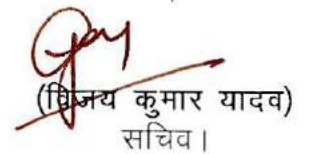 (विजय कुमार यादव)
सचिव।